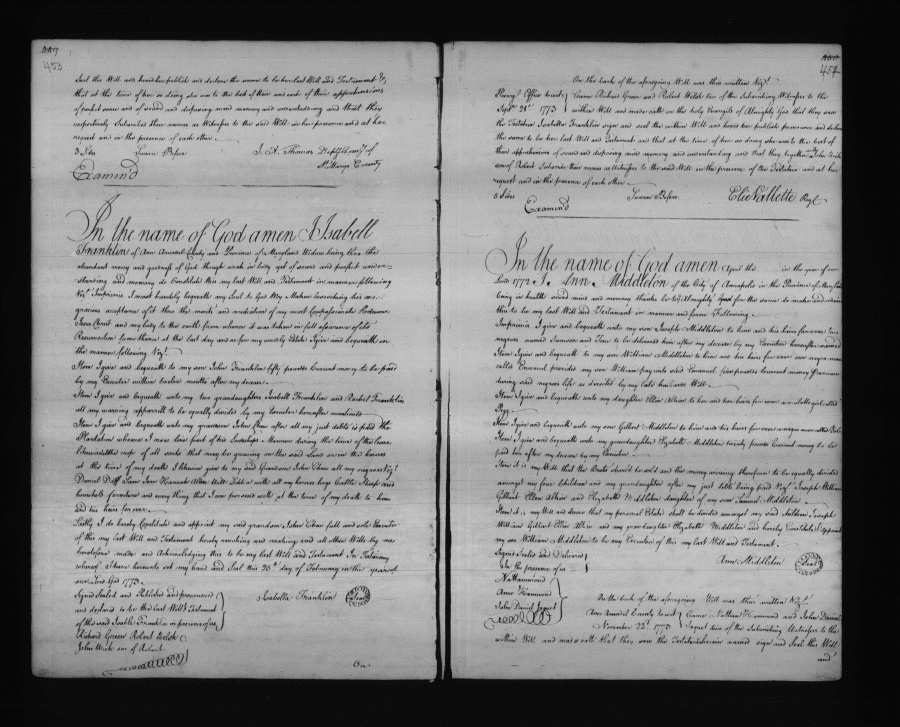 453
Seal this Will and heard her publish and declare the same to be her last Will and Testament &
that at the time of her so doing she was to the best of their and each of their apprehensions
of perfect sense and of sound and disposing mind memory and understanding and that they
respectively Subscribed their names as Witnesses to the said Will in her presence and at her
request and in the presence of each other
3 Sides Sworn Before J. A. Thomas Depty Comsy of
St Marys County
Examind
In the name of God amen I Isabell
Franklin of Ann Arundel County and Province of Maryland Widow being thro the
abundant mercy and goodness of God though weak in body yet of sound and perfect under-
standing and memory do Constitute this my last Will and Testament in manner following
Vizt Imprimis I most humbly bequeath my Soul to God My Maker beseeching his most
gracious acceptance of it thro the merits and mediation of my most Compassionate Redeemer
Jesus Christ and my body to the earth from whence it was taken in full assurance of its
Resurrection from thence at the last day and as for my worldly Estate I give and bequeath in
the manner following Vizt
Item I give and bequeath to my son John Franklin fifty pounds Current money to be paid
by my Executor within twelve months after my decease
Item I give and bequeath unto my two grandaughters Isabell Franklin and Rachel Franklin
all my wearing apparrell to be equally divided by my Executor hereafter mentioned
Item I give and bequeath unto my grandson John after all my just debts is paid the
Plantation whereon I now live part of his Lordships Mannor during the time of the lease
likewise the crops of all sorts that may be growing on the said Land or in the houses
at the time of my death I likewise give to my said Grandson John all my negroes Vizt
Daniel Duff Sam Jem Hannah with all my horses hogs Cattle Sheep and
household furniture and every thing that I am possessed with at the time of my death to him
and his heirs forever
Lastly I do hereby Constitute and appoint my said grandson John full and sole Executor
of this my last Will and Testament hereby revoking and making void all other Wills by me
heretofore made and Acknowledging this to be my last Will and Testament In Testimony
whereof I have hereunto set my hand and Seal this 25th day of February in the year of
our Lord God 1773.
Signed Sealed and Published and pronounced
and declared to be the last Will & Testament Isabella Franklin Seal
of the said Isable Franklin in presence of us
Richard Green Robert Welsh
John Welsh son of Robert
On
457
On the back of the aforegoing Will was thus written Vizt
Prerog. Office Came Richard Green and Robert Welsh two of the Subscribing Witnesses to the
Sepr 28th 1773 within Will and made oath on the holy Evangels of Almighty God that they saw
the Testatrix Isabella Franklin sign and seal the within Will and heard her publish pronounce and declare
the same to be her last Will and Testament and that at the time of her so doing she was to the best of
their apprehensions of sound and disposing mind memory and understanding and that they together with John Welsh
son of Robert Subscribed their names as Witnesses to the said Will in the presence of the Testatrix and at her
request and in the presence of each other
5 Sides Sworn Before Elie Vallette Regr
Examind
In the name of God amen upon the in the year of our
Lord 1772 I Ann Middleton of the City of Annapolis in the Province of Maryland
being in health sound mind and memory thanks be to Almighty God for the same do make and ordain
this to be my last Will and Testament in manner and form Following
Imprimis I give and bequeath unto my son Joseph Middleton to him and his heirs forever two
negroes named Samson and Tom to be delivered him after my decease by my Executor hereafter named
Item I give and bequeath to my son William Middleton to him and his heirs for ever one negro man
called Emanuel provided my son William pay unto said Emanuel five pounds Current money annum
during said negroes life as directed by my late husbands Will
Item I give and bequeath unto my daughter Ellen Alkin to her and her heirs for ever one mulatto girl called
Pegg
Item I give and bequeath unto my son Gilbert Middleton to him and his heirs for ever a negro man called Bob
Item I give and bequeath unto my grandaughter Elizabeth Middleton twenty pounds Current money to be
paid her after my decease by my Executor
Item it is my Will that the Boats should be sold and the money arising therefrom to be equally divided
amongst my four Children and my grandaughter after my just debts being paid Vizt Joseph William
Gilbert Ellen Alkin and Elizabeth Middleton daughter of my son Samuel Middleton
Item it is my Will and desire that my personal Estate shall be divided amongst my said children Joseph
William Gilbert Ellen Alkin and my grandaughter Elizabeth Middleton and hereby Constitute & appoint
my son William Middleton to be my Executor of this my last Will and Testament
Signed Sealed and Delivered
In the presence of us Ann Middleton Seal
Nat Hammond
Ann Hammond
John Daniel Jaquet
On the back of the aforegoing Will was thus written Vizt
Ann Arundel County to wit Came Nathan Hammond and John Daniel
November 22d 1773 Jaquet two of the Subscribing Witnesses to the
within Will and made oath that they saw the Testatrix herein named sign and Seal this Will
and